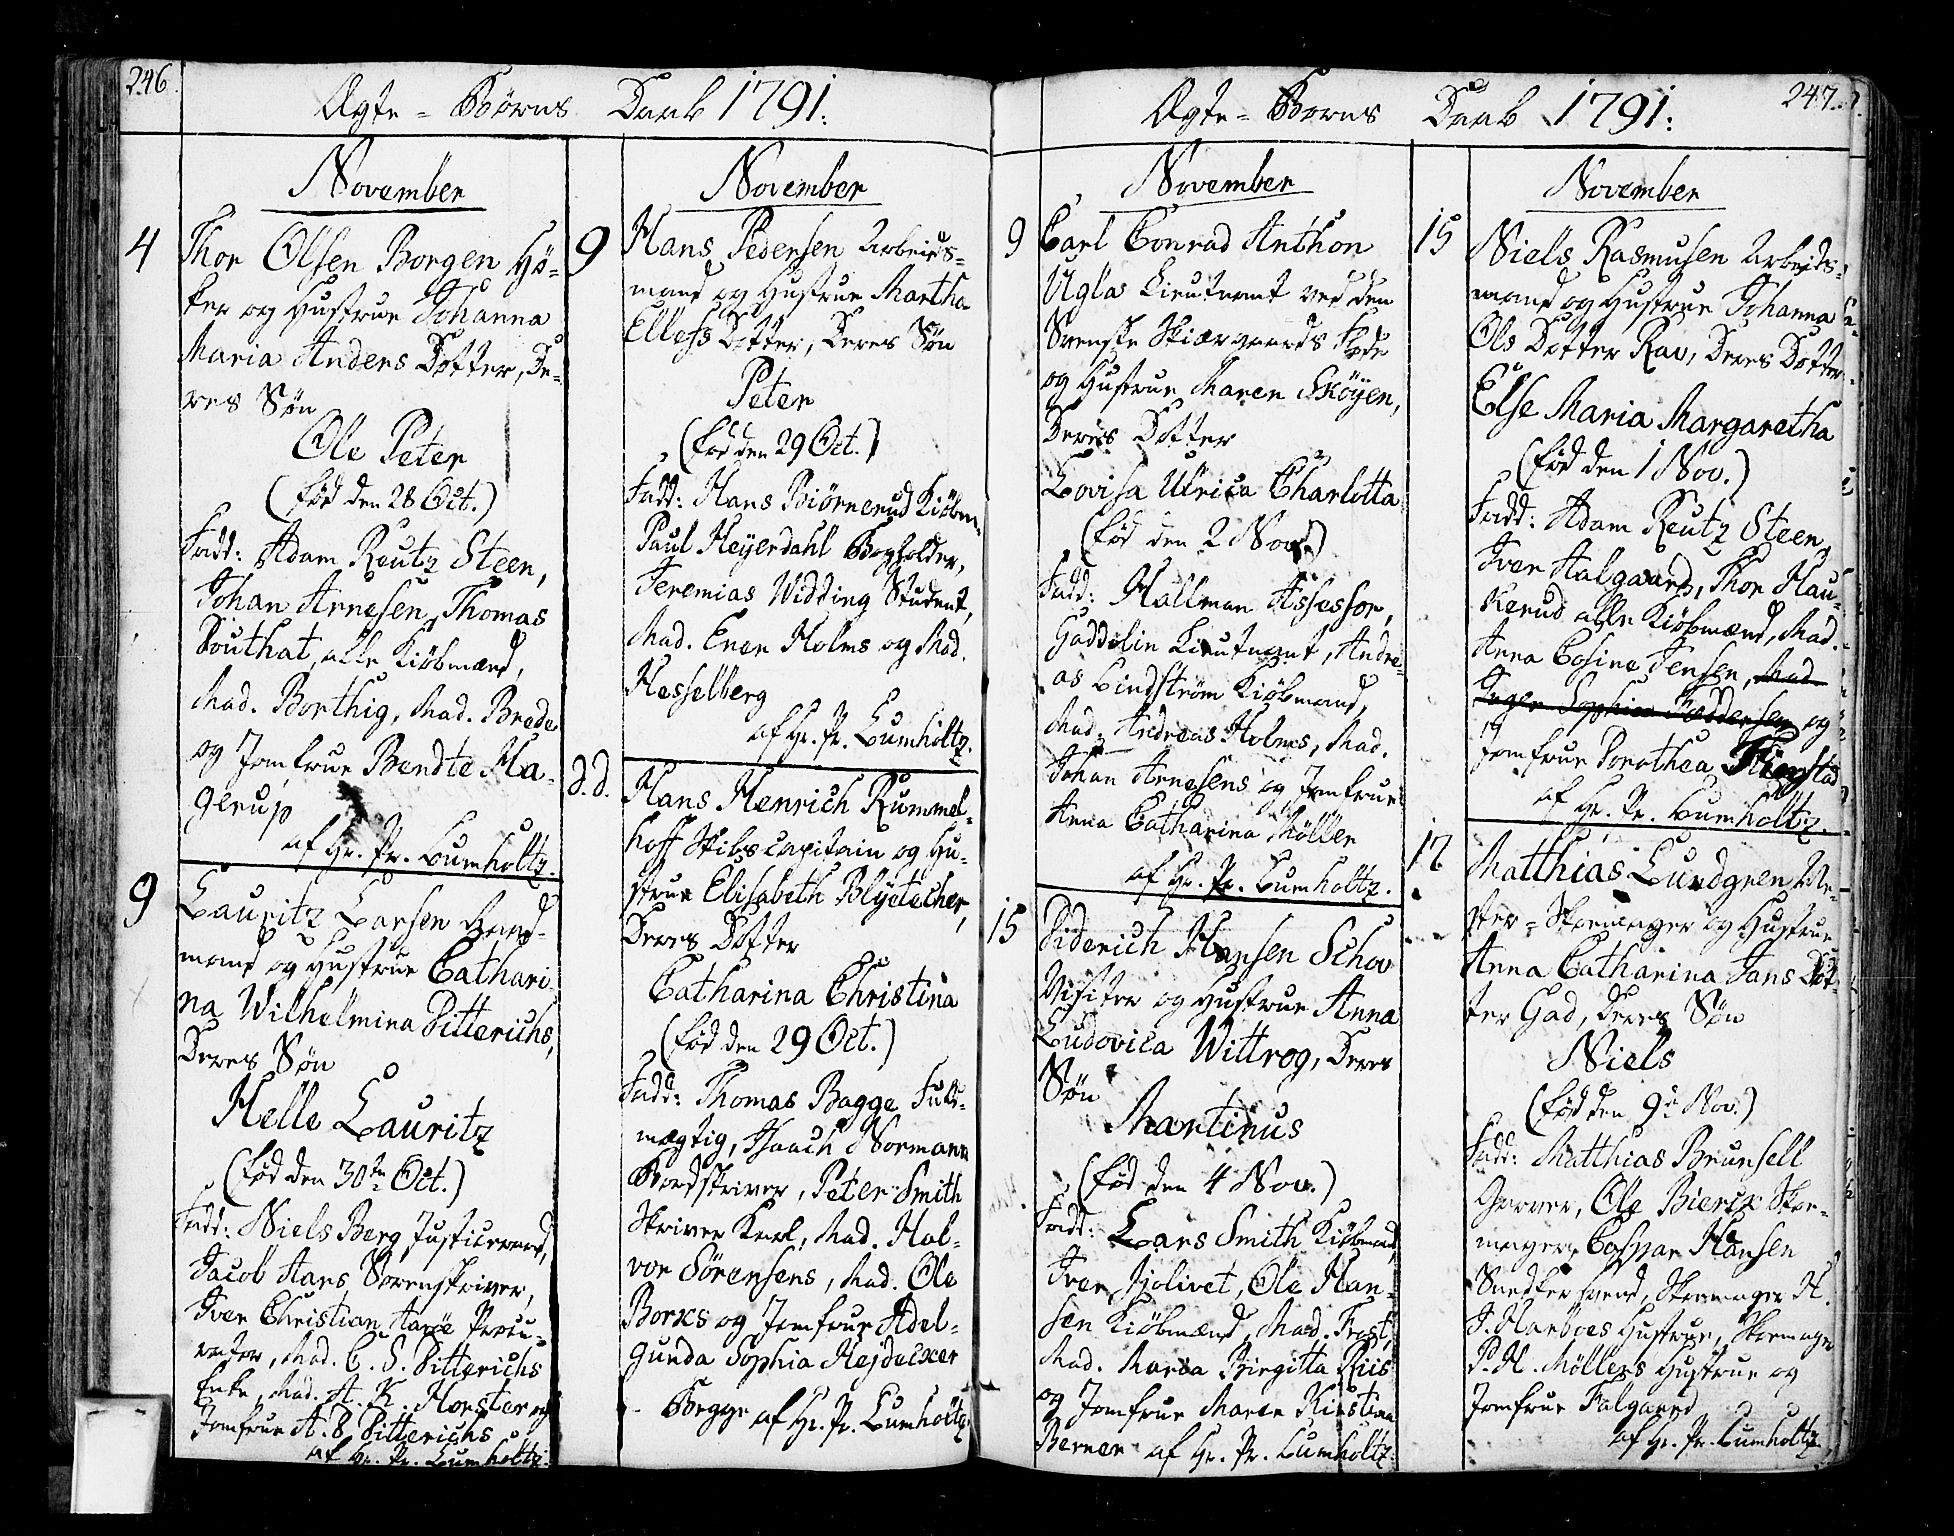 246.
Ægte = Børns Daab 1791.
November
4 Thor Olsen Borgen Hø-
ker og Hustrue Johanna
Maria Anders Dotter, De-
res Søn
Ole Peter
(fød den 28 Oct.)
Fadd: Adam Reutz Steen,
Johan Arnesen, Thomas
Southat, alle Kiöbmænd,
Mad. Borthig, Mad. Brede
og Jomfrue Bendte Ha-
gerup
af Hr. Pr. Lumholtz.
9 Lauritz Larsen
mand og Hustrue Cathari
na Wilhelmina Ditterichs,
Deres Søn
Helle Lauritz
(fød den 30te Oct.)
Fadd: Niels Berg Justiceraad,
Jacob Aars Sorenskriver,
Iver Christian Aarøe Procu-
rator, Mad. C. S. Ditterichs
Enke, Mad. A. K. Horster og
Jomfrue A. B. Ditterichs
af Hr. Pr. Lumholtz.
November
9 Hans Pedersen Arbeids-
mand og Hustrue Martha
Ellefs Dotter, Deres Søn
Peter
(fød den 29 Oct.)
Fadd: Hans Biørnerud Kiöbm.
Paul Heyerdahl Bogholder,
Jeremias Widding Student,
Mad. Ener Holms og Mad.
Hesselberg
af Hr. Pr. Lumholtz.
d.d. Hans Henrich Rummel-
hoff Skibscapitain og Hu-
strue Elisabeth Blÿetecher,
Deres Dotter
Catharina Christina
(fød den 29 Oct.)
Fadd: Thomas Bagge Fuld-
mægtig, Isaach Normann
Bordskriver, Peter Smith
Skriver Karl, Mad. Hal-
vor Sörensens, Mad. Ole
Borxs og Jomfrue Adel-
gunda Sophia Hejdelxer
Begge af Hr. Pr. Lumholtz
247.
Ægte = Børns Daab 1791.
November
9 Carl Conrad Anthon
Uglas Lieutnant ved den
Svenske Skiærgaards Flode
og Hustrue Maren Sköyen,
Deres Dotter
Lovisa Ulrica Charlotta
(fød den 2 Nov.)
Fadd: Hallman Assessor,
Gaddelin Lieutnant, Andre-
as Lindström Kiöbmand,
Mad. Andreas Holmes, Mad.
Johan Arnesens og Jomfrue
Anna Catharina Möller
af Hr. Pr. Lumholtz.
15 Diderich Hansen Schov
Visiteur og Hustrue Anna
Ludovica Wittrog, Deres
Søn
Martinus
(fød den 4 Nov.)
Fadd: Lars Smith Kiöbmand,
Iver Jolivet, Ole Han-
sen Kiöbmænd, Mad. Frost,
Mad. Maria Birgitta Riis
og Jomfrue Maren Kirstina
Berner af Hr. Pr. Lumholtz.
November
15 Niels Rasmusen Arbeids-
mand og Hustrue Johanna
Ols Dotter Rav, Deres Dotter
Else Maria Margaretha
(fød den 1 Nov.)
Fadd: Adam Reutz Steen,
Iver Aalgaard, Thor Hau-
kerud alle Kiöbmænd, Mad.
Anna Cosine Jensen, Mad.
Inger Sophie Peddersen og
Jomfrue Dorothea
af Hr. Pr. Lumholtz.
17 Matthias Lundgren Me-
ster-Skoemager og Hustrue
Anna Catharina Jans Dot-
ter Gad, Deres Søn
Niels
(fød den 9de Nov.)
Fadd: Matthias Brunsell
Garver, Ole Bierck Skoe-
mager, Casper Hansen
Snedker svend, Skoemager H.
J. Harboes Hustrue, Skoemager
P. H. Möllers Hustrue og
Jomfrue Falgaard
af Hr. Pr. Lumholtz